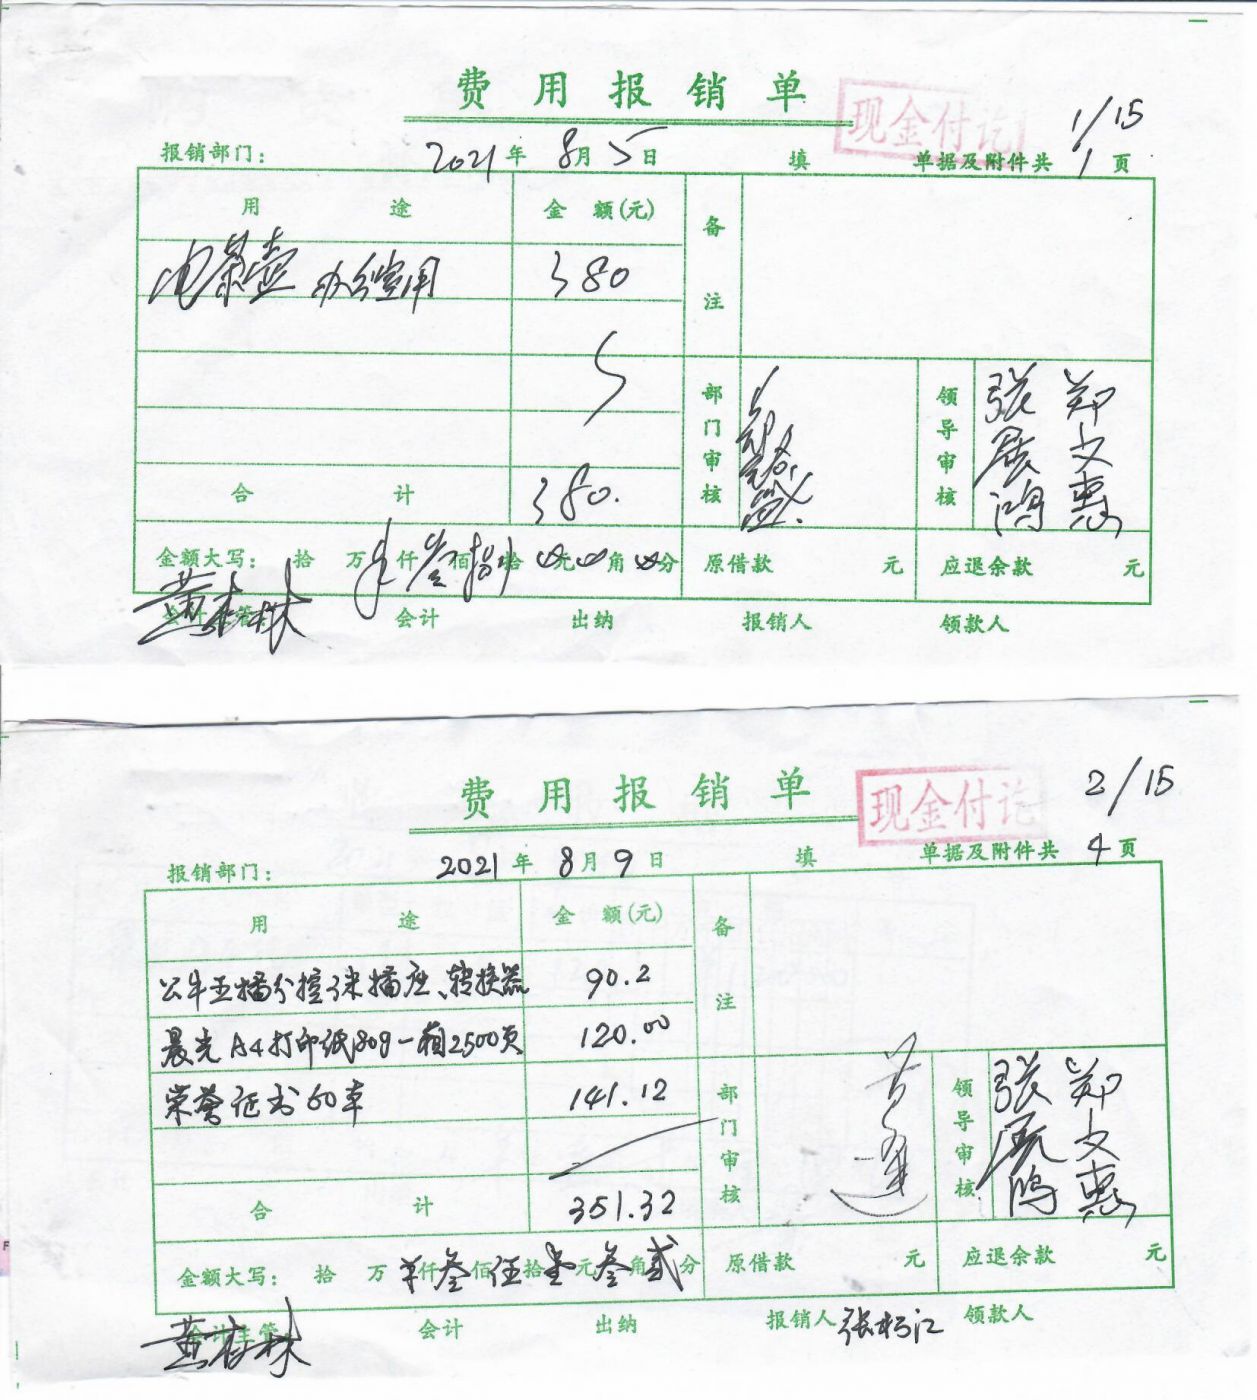 费用报销单
现金付讫
1/15
报销部门： 2021年 8月 5日 填 单据及附件共 1 页
用途 金额(元) 备注
电茶壶 办公室用 380
合计 380.
部门审核 领导审核 郑文惠
金额大写： 拾 万 ¥仟 叁佰 捌拾 0元 0角 0分 原借款 元 应退余款 元
会计主管 会计 出纳 报销人 领款人
费用报销单
现金付讫
2/15
报销部门： 2021年 8月 9日 填 单据及附件共 4 页
用途 金额(元) 备注
公牛五插分控3米插座、转换器 90.2
晨光A4打印纸80g一箱2500页 120.00
荣誉证书60本 141.12
合计 351.32
部门审核 领导审核 郑文惠
金额大写： 拾 万 ¥仟 叁佰 伍拾 壹元 叁角 贰分 原借款 元 应退余款 元
会计主管： 会计 出纳 报销人 领款人